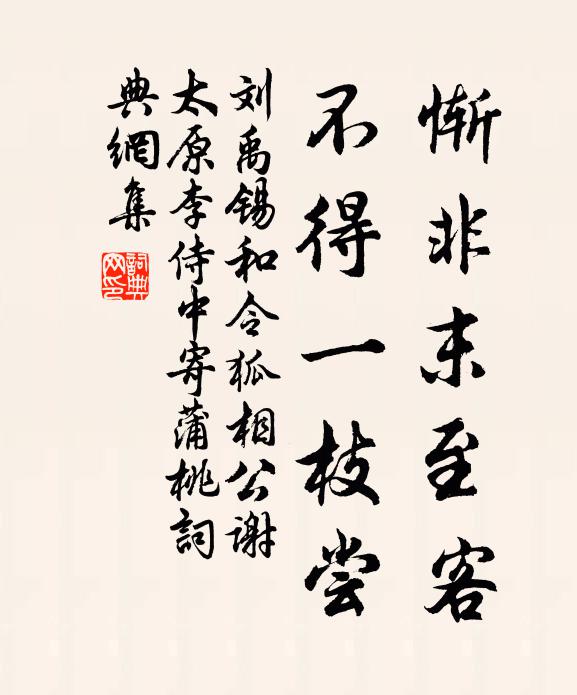 惭非末至客
不得一枝尝
刘禹锡和令狐相公谢
太原李侍中寄蒲桃詞
典網集
詞典网印